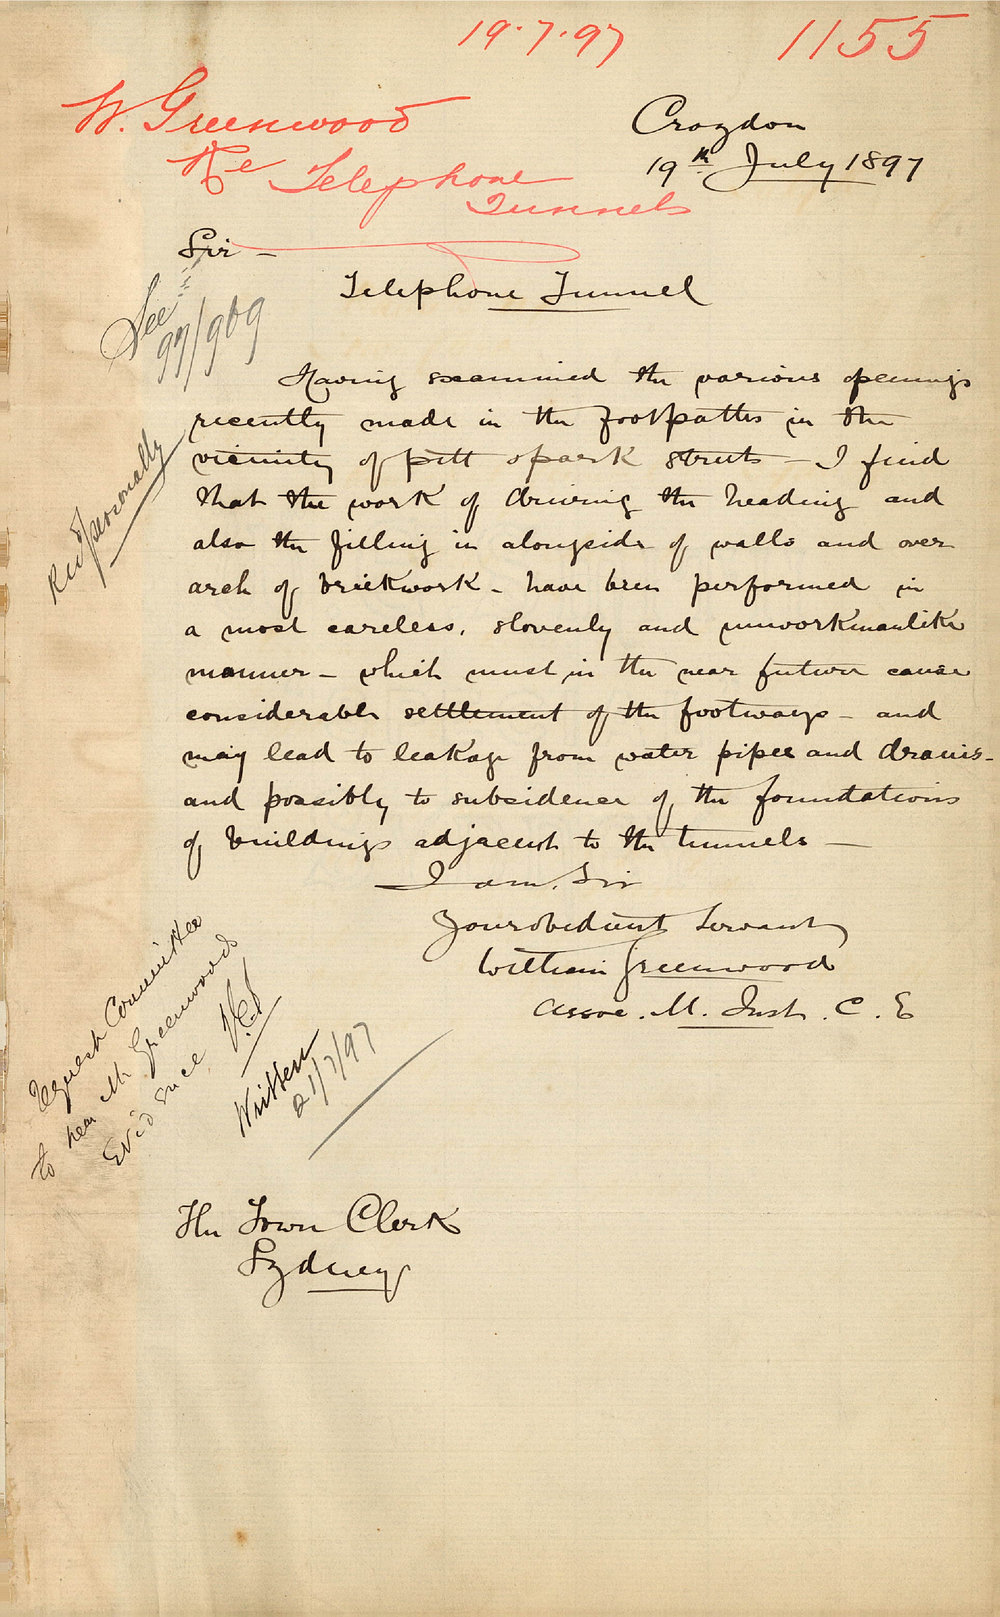 19.7.97
1155
W. Greenwood
Re Telephone
Tunnels
Croydon
19th July 1897
Sir -
Telephone Tunnel
See
97/909
Having examined the various openings
recently made in the footpaths in the
vicinity of pitt & park streets - I find
that the work of driving the heading and
also the filling in alongside of walls and over
arch of brickwork - have been performed in
a most careless, slovenly and unworkmanlike
manner - which must in the near future cause
considerable settlement of the footways - and
may lead to leakage from water pipes and drains -
and possibly to subsidence of the foundations
of buildings adjacent to the tunnels -
I am, Sir
Your obedient Servant
William Greenwood
Assoc. M. Inst. C. E
Recd personally
Request Committee
to hear Mr Greenwoods
Evidence
Written
21/7/97
The Town Clerk
Sydney